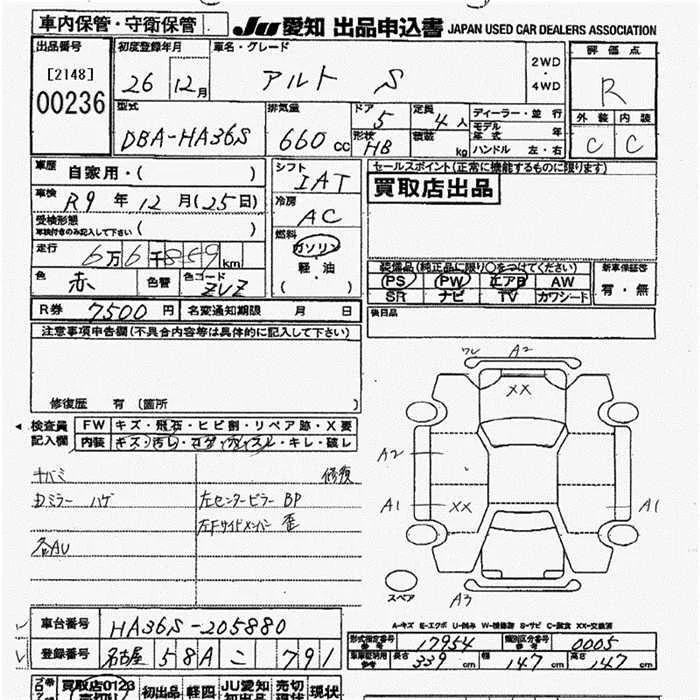 車内保管・守衛保管
JU 愛知 出品申込書 JAPAN USED CAR DEALERS ASSOCIATION
出品番号
[2148]
00236
初度登録年月
26 12月
車名・グレード
アルト S
2WD
・
4WD
評価点
R
外装 内装
C C
型式
DBA-HA36S
排気量
660 cc
ドア
5
定員
4 人
形状
HB
積載
kg
ディーラー・並行
モデル年式 年
ハンドル 左・右
車歴
自家用・( )
車検
R9 年 12 月(25日)
受検形態
車検付きのみ記入して下さい ( )
走行
6万6千859km
色
赤
色替
色コード
ZVZ
シフト
IAT
冷房
AC
燃料
ガソリン
・
軽油
・
( )
セールスポイント(正常に機能するものに限ります)
買取店出品
装備品(純正品に限り○をつけてください)
PS PW エアB AW
SR ナビ TV カワシート
新車保証書
有・無
後日品
R券 7500 円
名変通知期限 月 日
注意事項申告欄(不具合内容等は具体的に記入して下さい)
修復歴 有 (箇所 )
検査員記入欄
FW キズ・飛石・ヒビ割・リペア跡・X要
内装 キズ・汚レ・コゲ・カイスレ・キレ・破レ
チバミ
Dミラー ハゲ
各AU
修復
左センターピラー BP
左Fサイドメンバー 歪
ワレ A2
XX
A2
A1 XX
A1
A3
スペア
A-キズ E-エクボ U-凹み W-補修跡 S-サビ C-腐食 XX-交換済
車台番号 HA36S-205880
登録番号 名古屋 58A こ 791
形式指定番号 参考 17954
類別区分番号 参考 0005
車庫証明用 参考 長さ 339 cm 幅 147 cm 高さ 147 cm
買取店0123
初出品 軽四 JU愛知 売切 現状